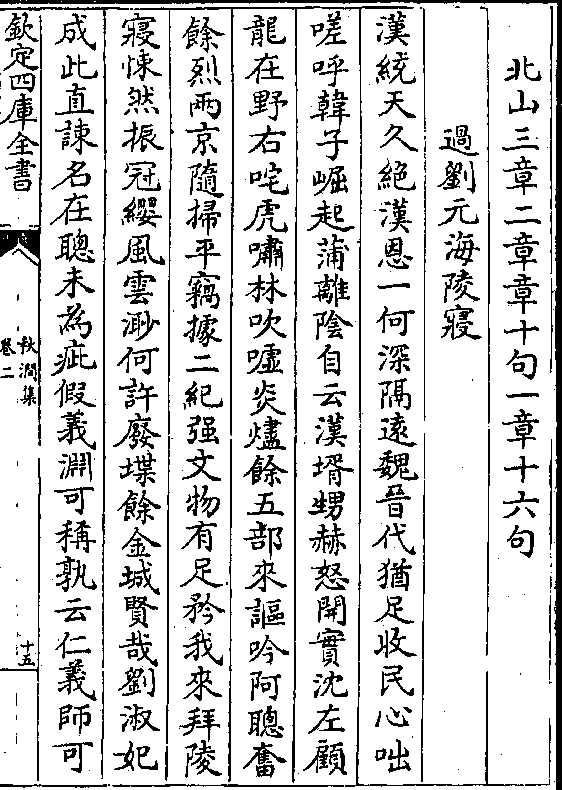 北山三章二章章十句一章十六句
過劉元海陵寢
漢統天久絕漢恩一何深隔遠魏晉代猶足收民心咄
嗟呼韓子崛起蒲離陰自云漢壻甥赫怒開實沈左顧
龍在野右咤虎嘯林吹噓炎燼餘五部來謳吟阿聰奮
餘烈兩京隨掃平竊據二紀强文物有足矜我來拜陵
寢悚然振冠纓風雲渺何許廢堞餘金城賢哉劉淑妃
成此直諫名在聰未為疵假義淵可稱孰云仁義師可
欽定四庫全書
秋澗集
卷二
十五